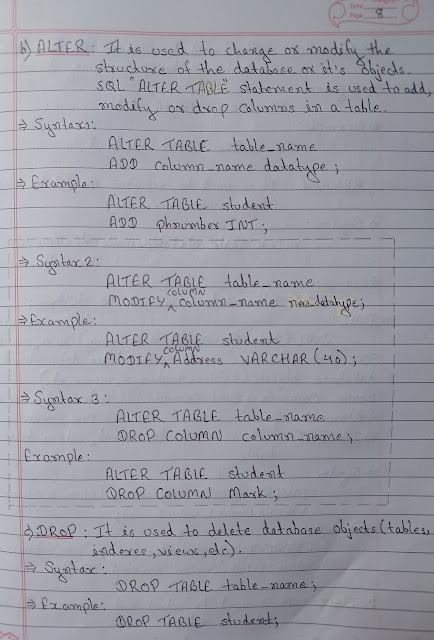 Date
Page 8
b) ALTER: It is used to change or modify the
structure of the database or it's objects.
SQL "ALTER TABLE" statement is used to add,
modify, or drop columns in a table.
⇒ Syntax1:
ALTER TABLE table_name
ADD column_name datatype;
⇒ Example:
ALTER TABLE student
ADD phnumber INT;
⇒ Syntax2:
ALTER TABLE table_name
MODIFY COLUMN column_name new_datatype;
⇒ Example:
ALTER TABLE student
MODIFY COLUMN Address VARCHAR (40);
⇒ Syntax 3:
ALTER TABLE table_name
DROP COLUMN column_name;
Example:
ALTER TABLE student
DROP COLUMN Mark;
c) DROP: It is used to delete database objects (tables,
indexes, views, etc).
⇒ Syntax:
DROP TABLE table_name;
⇒ Example:
DROP TABLE student;